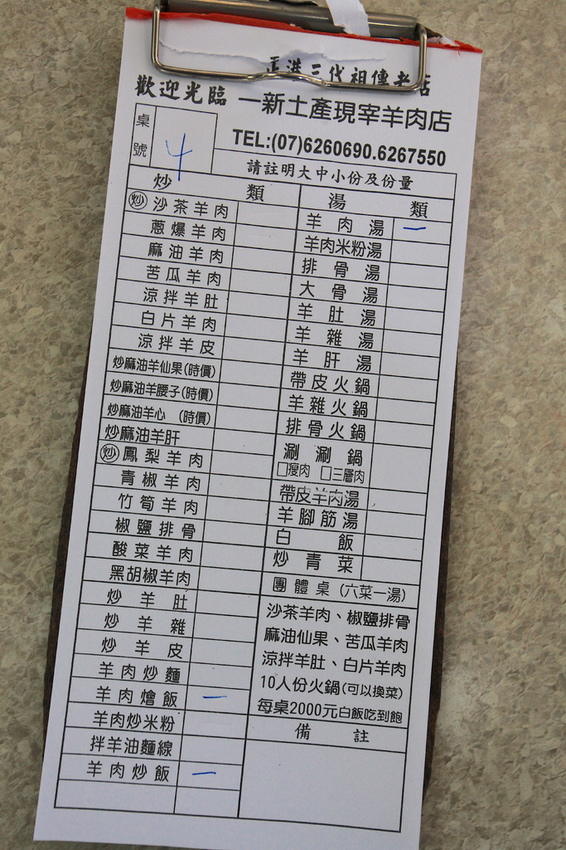 正港三代祖傳老店
歡迎光臨 一新土產現宰羊肉店
TEL:(07)6260690.6267550
桌號 4
請註明大中小份及份量
炒類
炒 沙茶羊肉
蔥爆羊肉
麻油羊肉
苦瓜羊肉
涼拌羊肚
白片羊肉
涼拌羊皮
炒麻油羊仙果(時價)
炒麻油羊腰子(時價)
炒麻油羊心 (時價)
炒麻油羊肝
炒 鳳梨羊肉
青椒羊肉
竹筍羊肉
椒鹽排骨
酸菜羊肉
黑胡椒羊肉
炒羊肚
炒羊雜
炒羊皮
羊肉炒麵
羊肉燴飯 一
羊肉炒米粉
拌羊油麵線
羊肉炒飯 一
湯類
羊肉湯 一
羊肉米粉湯
排骨湯
大骨湯
羊肚湯
羊雜湯
羊肝湯
帶皮火鍋
羊雜火鍋
排骨火鍋
涮涮鍋
□瘦肉 □三層肉
帶皮羊肉湯
羊腳筋湯
白飯
炒青菜
團體桌(六菜一湯)
沙茶羊肉、椒鹽排骨
麻油仙果、苦瓜羊肉
涼拌羊肚、白片羊肉
10人份火鍋(可以換菜)
每桌2000元白飯吃到飽
備註